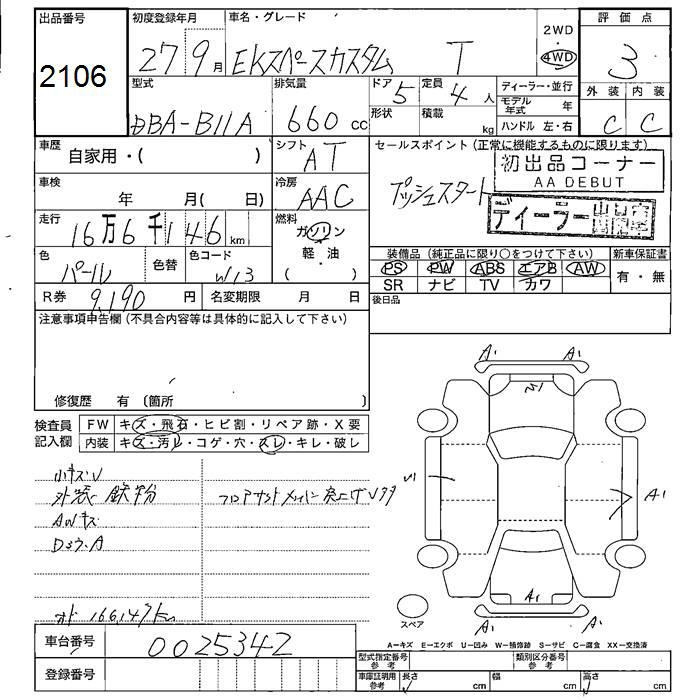 出品番号 初度登録年月 車名・グレード 2WD 評価点
2106 27 9月 EKスペースカスタム T 4WD 3
型式 排気量 ドア 定員 ディーラー・並行 外装 内装
DBA-B11A 660 cc 5 4 人 モデル年式 年 C C
形状 積載 kg ハンドル 左・右
車歴 自家用・( ) シフト AT セールスポイント (正常に機能するものに限ります)
初出品コーナー
AA DEBUT
車検 年 月( 日) 冷房 AAC プッシュスタート
ディーラー出品車
走行 16万6千146 km 燃料 ガソリン
軽・油
( )
装備品 (純正品に限り○をつけて下さい) 新車保証書
色 パール 色替 色コード W13 PS PW ABS エアB AW 有・無
SR ナビ TV カワ
R券 9,190 円 名変期限 月 日 後日品
注意事項申告欄 (不具合内容等は具体的に記入して下さい)
修復歴 有 (箇所 )
検査員 FW キズ・飛石・ヒビ割・リペア跡・X要
記入欄 内装 キズ・汚レ・コゲ・穴・スレ・キレ・破レ
小キズU
外装 鉄粉
AWキズ
オド 166147km
A1 A1
A1
A1
A1 A1
スペア
A-キズ E-エクボ U-凹み W-補修跡 S-サビ C-腐食 XX-交換済
車台番号 0025342
型式指定番号 参考 類別区分番号 参考
登録番号
車庫証明用 参考 長さ cm 幅 cm 高さ cm